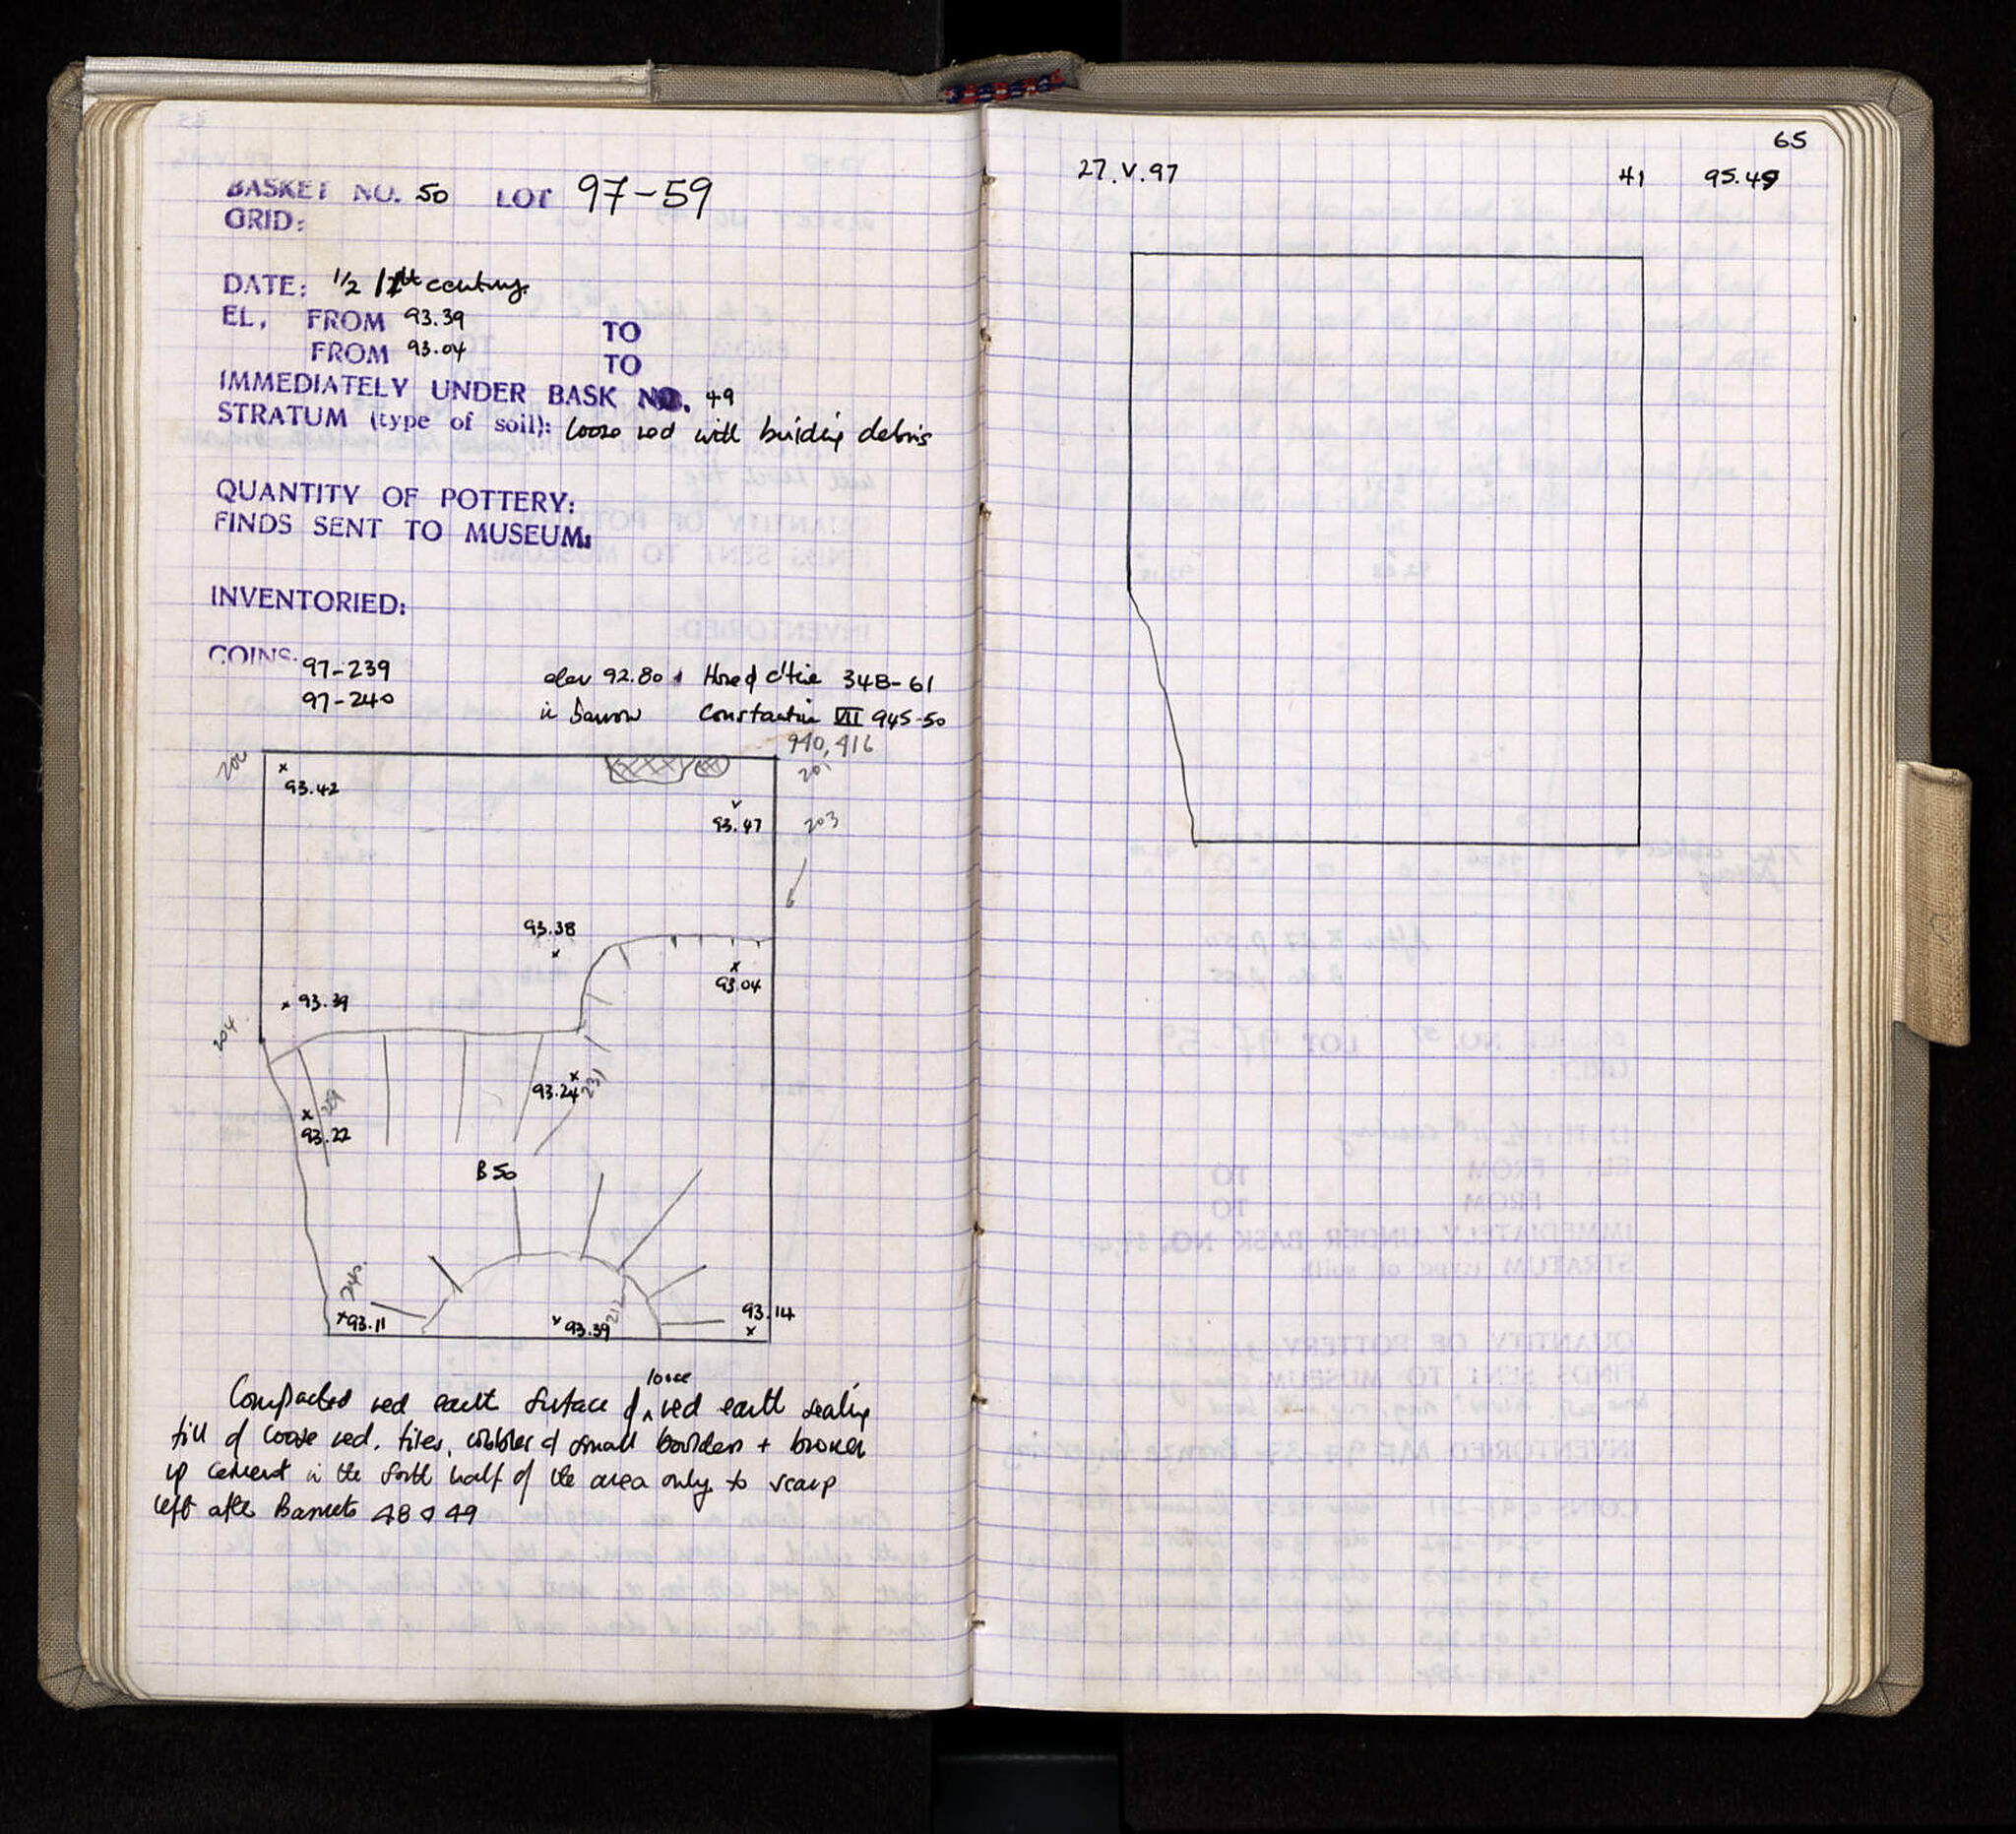 BASKET NO. 50 LOT 97-59
GRID:
DATE: 1/2 century
EL, FROM 93.39 TO
FROM 93.04 TO
IMMEDIATELY UNDER BASK NO. 49
STRATUM (type of soil): loose red with building debris
QUANTITY OF POTTERY:
FINDS SENT TO MUSEUM:
INVENTORIED:
COINS: 97-239 elev 92.80 348-61
97-240 in barrow Constantin VII 945-50
940, 416
200
201
93.42
93.47
203
93.38
93.04
93.39
204
93.24
231
93.22
B 50
240
93.11
93.39
212
93.14
Compacted red earth surface of loose red earth sealing
fill of loose red, tiles, cobbles & small boulders + broken
up cement in the south half of the area only to scarp
left after Baskets 48 & 49
65
27.V.97 H1 95.49